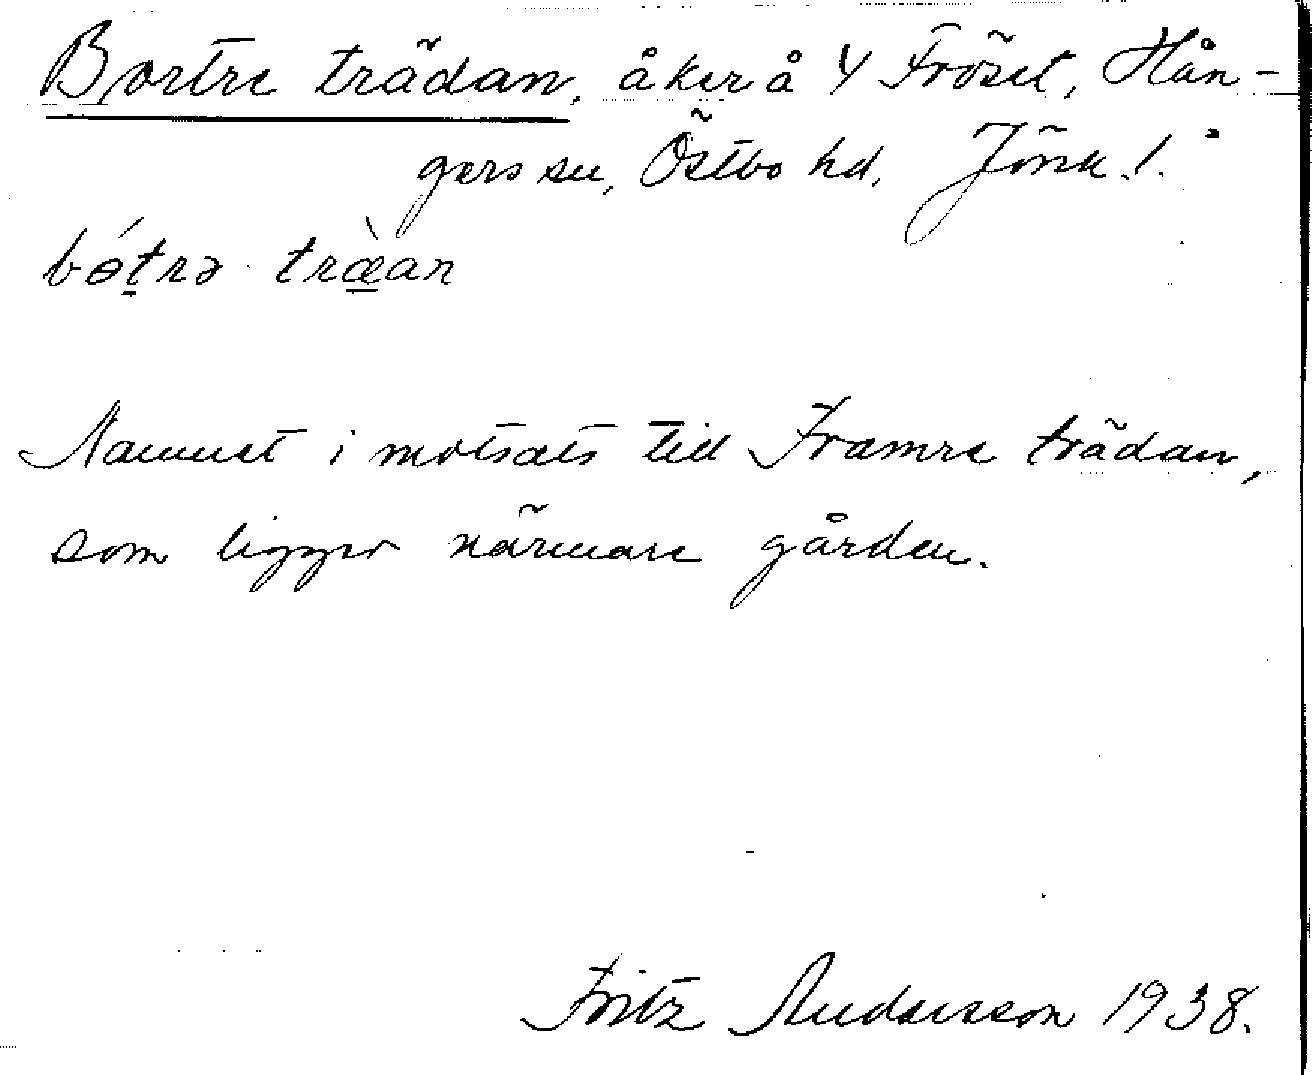 Bortre trädan, åker å 4 Fröset, Hån-
gers sn, Östbo hd, Jönk. l.
bǿt̠rə træ̠̀an
Namnet i motsats till Framre trädan,
som ligger närmare gården.
Fritz Andersson 1938.